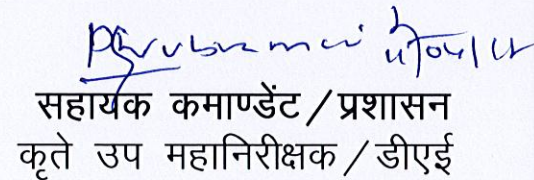 सहायक कमाण्डेंट/प्रशासन
कृते उप महानिरीक्षक/डीएई